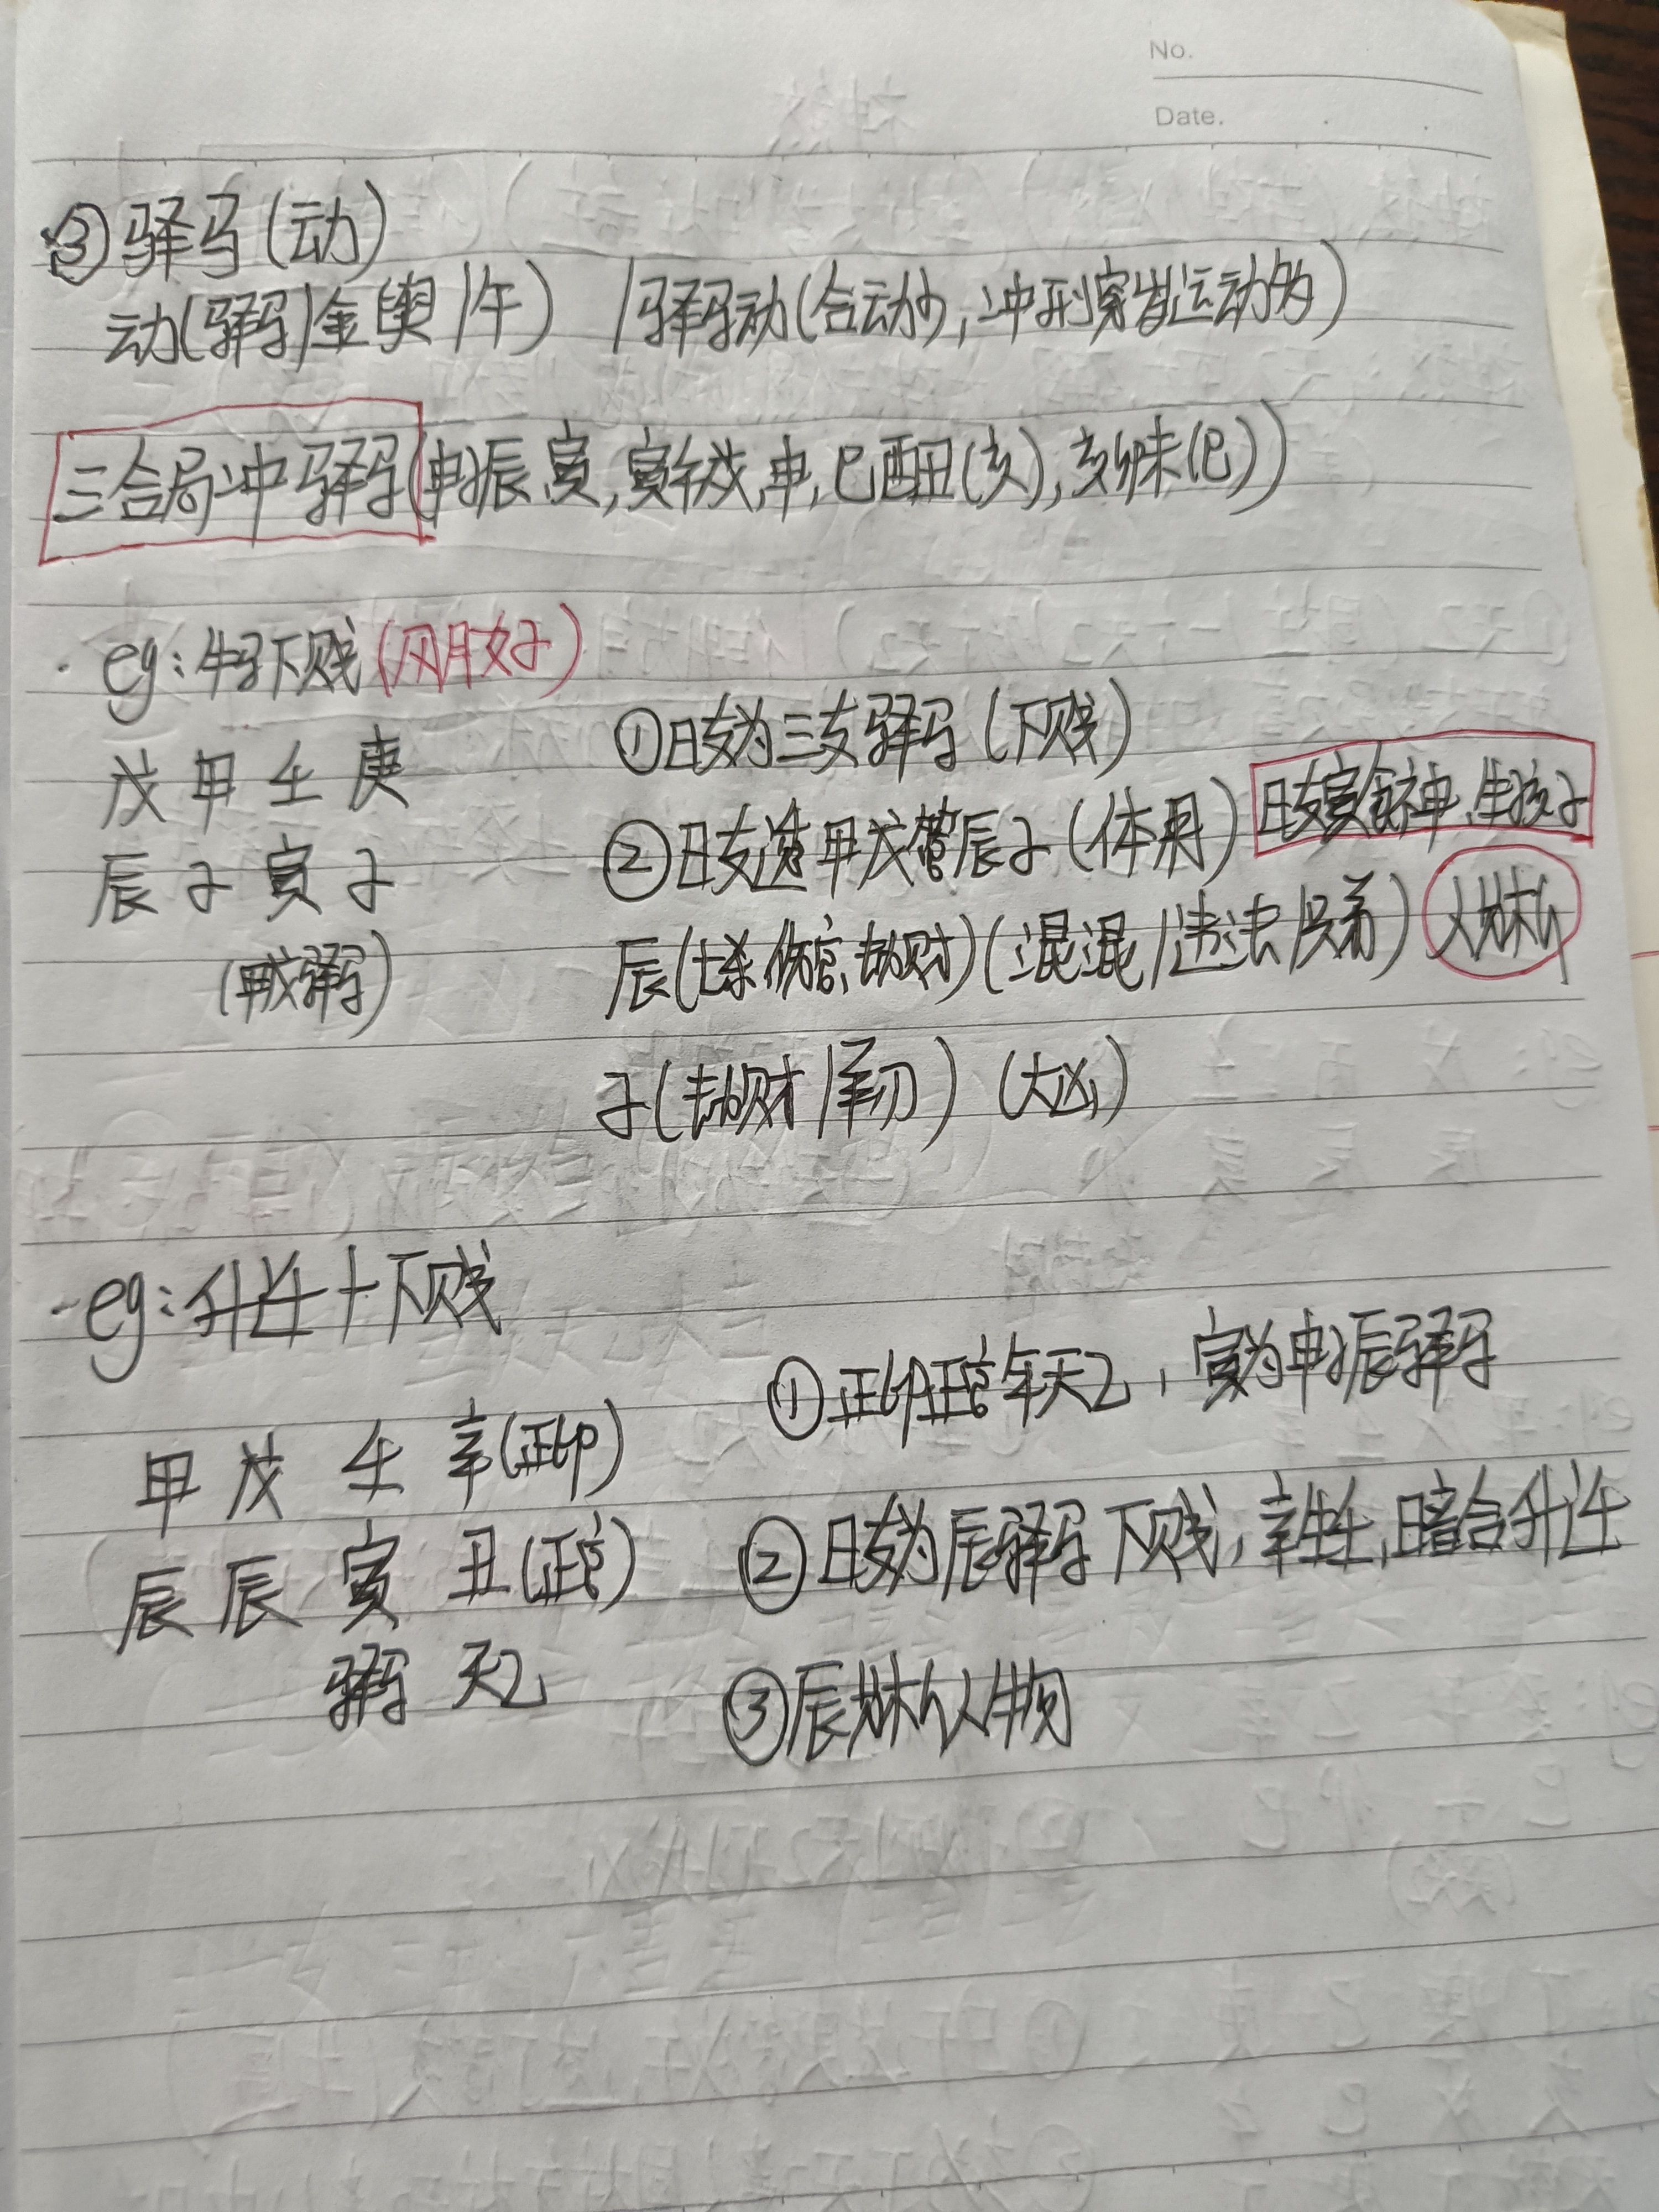 No.
Date.
③驿马(动)
动(驿马|金舆|午) |驿马动(合动少,冲刑穿皆运动多)
三合局冲驿马(申子辰,寅,寅午戌,申,巳酉丑(亥),亥卯未(巳))
·eg:牛马下贱(风月女子)
戊 甲 壬 庚
辰 子 寅 子
(甲戊驿马)
①日支为三支驿马(下贱)
②日支透甲戊管辰子(体用) 日支寅食神,生孩子
辰(七杀,伤官,劫财)(混混|违法|兄弟)
子(劫财|羊刃)(大凶)
·eg:升迁+下贱
甲 戊 壬 辛(正印)
辰 辰 寅 丑(正官)
驿马 天乙
①正印正官年天乙,寅为申子辰驿马
②日支为辰驿马下贱,辛生壬,暗合升迁